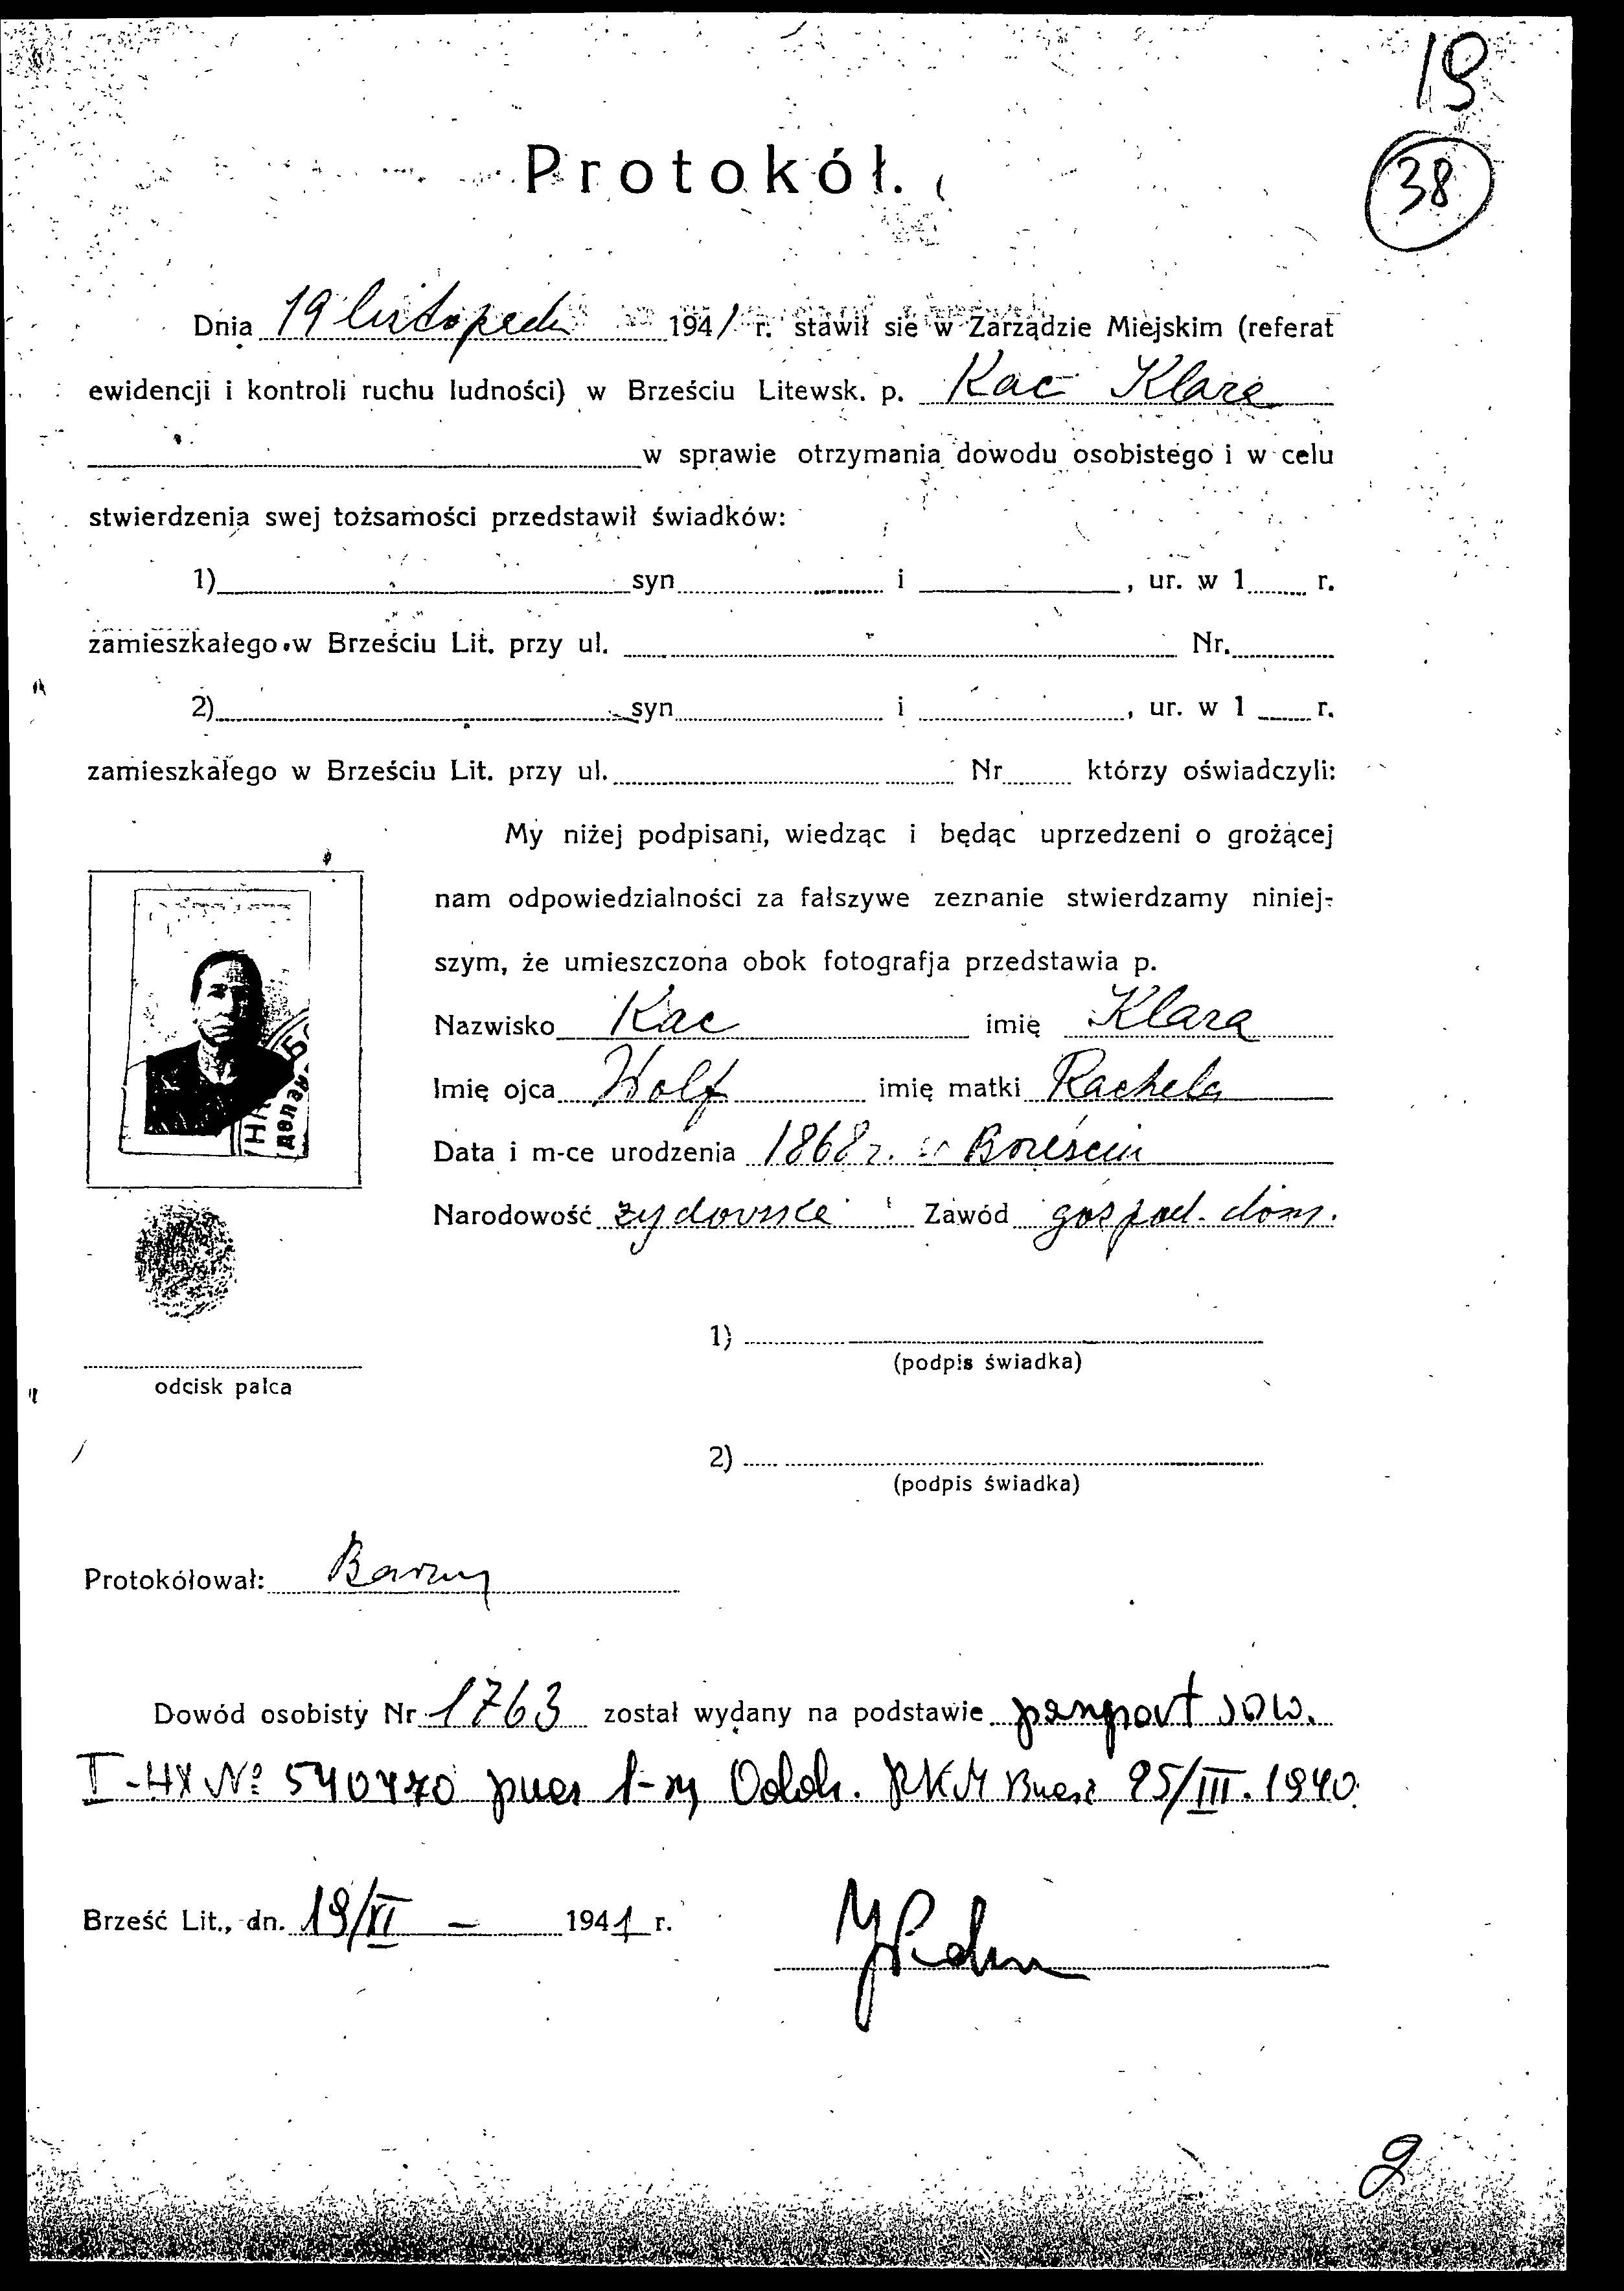 19
38
Protokół.
Dnia 19 listopada 1941 r. stawił sie w Zarządzie Miejskim (referat
ewidencji i kontroli ruchu ludności) w Brześciu Litewsk. p. Kac Klara
w sprawie otrzymania dowodu osobistego i w celu
stwierdzenia swej tożsamości przedstawił świadków:
1) syn i , ur. w 1 r.
zamieszkałego w Brześciu Lit. przy ul. Nr.
2) syn i , ur. w 1 r.
zamieszkałego w Brześciu Lit. przy ul. Nr którzy oświadczyli:
My niżej podpisani, wiedząc i będąc uprzedzeni o grożącej
nam odpowiedzialności za fałszywe zeznanie stwierdzamy niniej-
szym, że umieszczona obok fotografja przedstawia p.
Nazwisko Kac imię Klara
Imię ojca Wolf imię matki Rachela
Data i m-ce urodzenia 1868 r. w Brześciu
Narodowość żydowska Zawód gospod. dom.
odcisk palca
1)
(podpis świadka)
2)
(podpis świadka)
Protokółował:
Dowód osobisty Nr 1763 został wydany na podstawie paszport sow.
I-НХ № 540470 przez 1-szy Oddz. RKM Brześć 25/III. 1940.
Brześć Lit., dn. 19/XI — 1941 r.